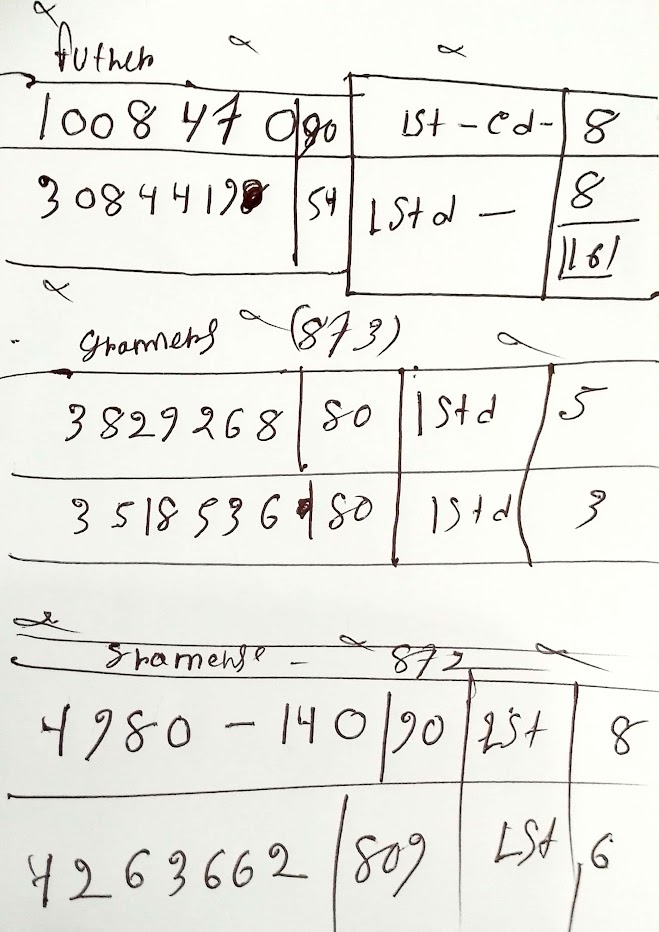 Authen
1008470 90 1st-ed- 8
3084419 54 LStd - 8
1161
grameens (873)
3829268 80 1Std 5
3518536 80 1Std 3
Gramense - 872
4980-140 90 1St 8
4263662 809 LSt 6